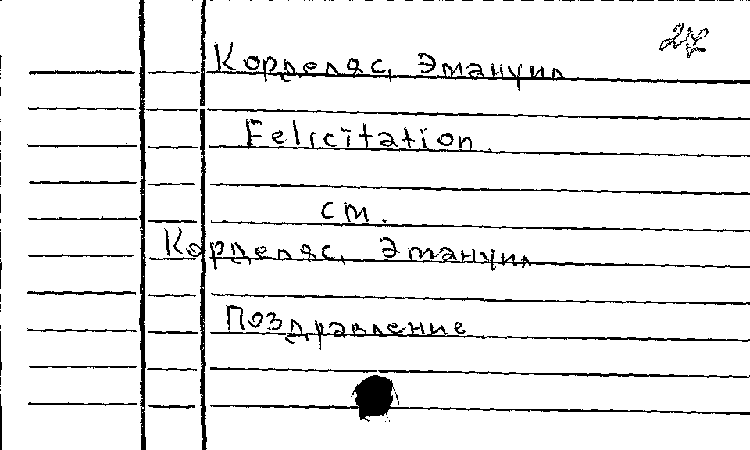 Корделяс, Эмануил
Felicitation.
см.
Корделяс, Эмануил
Поздравление